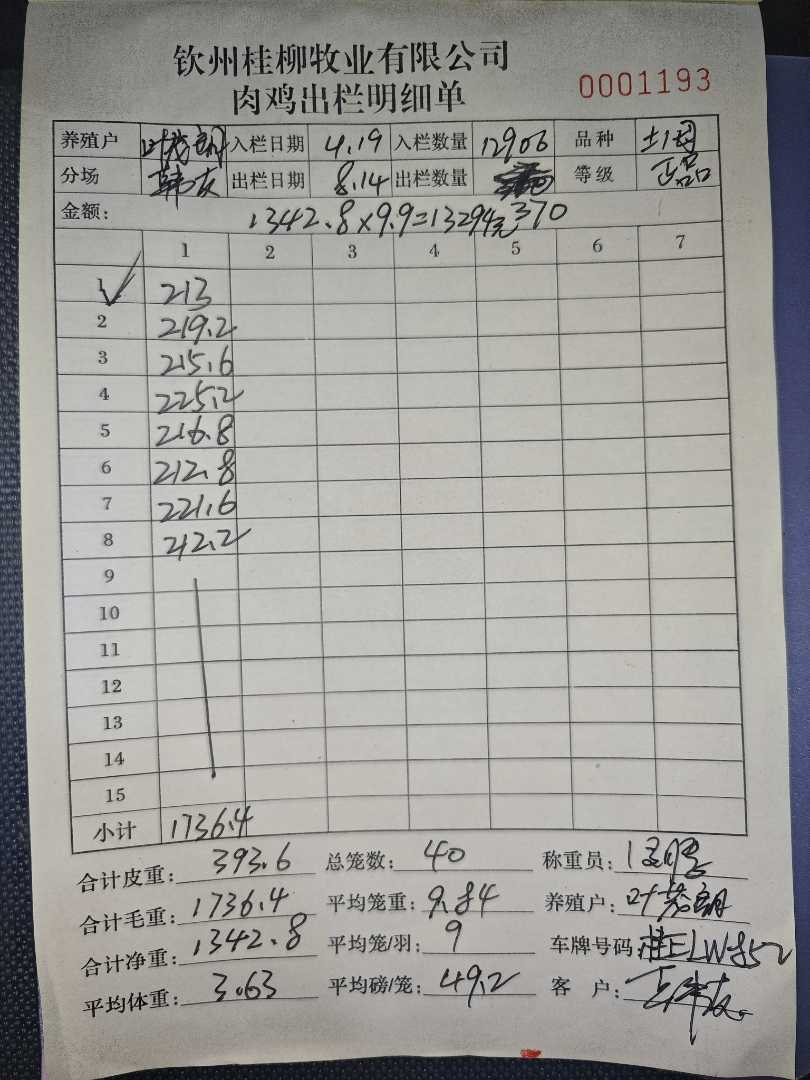 钦州桂柳牧业有限公司
肉鸡出栏明细单 0001193
养殖户 叶 入栏日期 4.19 入栏数量 12906 品种 土
分场 韩友 出栏日期 8.14 出栏数量 等级 正品
金额： 1342.8×9.9=13294元 370
1 2 3 4 5 6 7
1 213
2 219.2
3 215.6
4 225.2
5 216.8
6 212.8
7 221.6
8 212.2
9
10
11
12
13
14
15
小计 1736.4
合计皮重： 393.6 总笼数： 40 称重员：
合计毛重： 1736.4 平均笼重： 9.84 养殖户： 叶
合计净重： 1342.8 平均笼/羽： 9 车牌号码： 桂ELW852
平均体重： 3.63 平均磅/笼： 49.2 客 户：